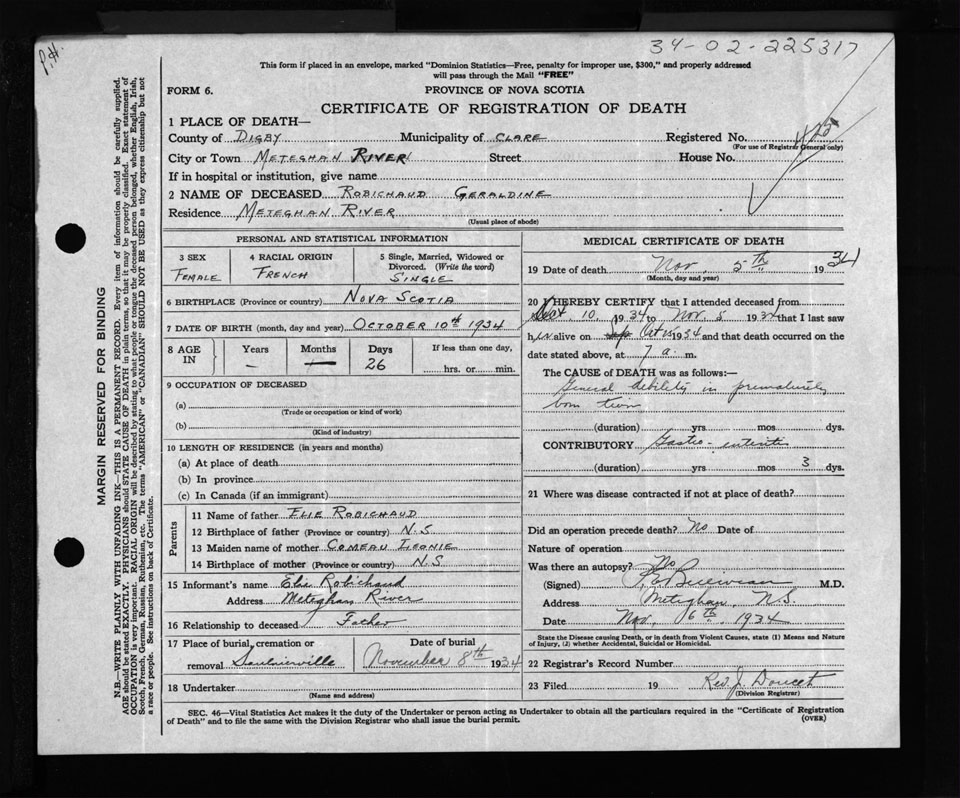 P.H.
34-02-225317
This form if placed in an envelope, marked "Dominion Statistics—Free, penalty for improper use, $300," and properly addressed
will pass through the Mail "FREE"
FORM 6. PROVINCE OF NOVA SCOTIA
CERTIFICATE OF REGISTRATION OF DEATH
1 PLACE OF DEATH—
County of DIGBY Municipality of CLARE Registered No.
(For use of Registrar General only)
City or Town METEGHAN RIVER Street House No.
If in hospital or institution, give name
2 NAME OF DECEASED ROBICHAUD GERALDINE
Residence METEGHAN RIVER
(Usual place of abode)
PERSONAL AND STATISTICAL INFORMATION
3 SEX 4 RACIAL ORIGIN 5 Single, Married, Widowed or
Divorced. (Write the word)
FEMALE FRENCH SINGLE
6 BIRTHPLACE (Province or country) NOVA SCOTIA
7 DATE OF BIRTH (month, day and year) OCTOBER 10th 1934
8 AGE IN Years Months Days If less than one day,
— — 26 hrs. or min.
9 OCCUPATION OF DECEASED
(a)
(Trade or occupation or kind of work)
(b)
(Kind of industry)
10 LENGTH OF RESIDENCE (in years and months)
(a) At place of death
(b) In province
(c) In Canada (if an immigrant)
Parents
11 Name of father ELIE ROBICHAUD
12 Birthplace of father (Province or country) N.S
13 Maiden name of mother COMEAU LEONIE
14 Birthplace of mother (Province or country) N.S
15 Informant's name Elie Robichaud
Address Meteghan River
16 Relationship to deceased Father
17 Place of burial, cremation or Date of burial
removal Saulnierville November 8th 1934
18 Undertaker
(Name and address)
MEDICAL CERTIFICATE OF DEATH
19 Date of death Nov. 5th 1934
(Month, day and year)
20 I HEREBY CERTIFY that I attended deceased from
10 1934 to Nov. 5 1934 that I last saw
her alive on Oct 15 1934 and that death occurred on the
date stated above, at 7 a. m.
The CAUSE of DEATH was as follows:—
General debility in prematurely
born twin
(duration) yrs mos dys.
CONTRIBUTORY Gastro-enteritis
(duration) yrs mos 3 dys.
21 Where was disease contracted if not at place of death?
Did an operation precede death? No Date of
Nature of operation
Was there an autopsy? No
(Signed) M.D.
Address Meteghan, N.S.
Date Nov. 6th 1934
State the Disease causing Death, or in death from Violent Causes, state (1) Means and Nature
of Injury, (2) whether Accidental, Suicidal or Homicidal.
22 Registrar's Record Number
23 Filed 19 Rev. J. Doucet
(Division Registrar)
SEC. 46—Vital Statistics Act makes it the duty of the Undertaker or person acting as Undertaker to obtain all the particulars required in the "Certificate of Registration
of Death" and to file the same with the Division Registrar who shall issue the burial permit. (OVER)
MARGIN RESERVED FOR BINDING
N.B.—WRITE PLAINLY WITH UNFADING INK—THIS IS A PERMANENT RECORD. Every item of information should be carefully supplied.
AGE should be stated EXACTLY. PHYSICIANS should STATE CAUSE OF DEATH in plain terms, so that it may be properly classified. Exact statement of
OCCUPATION is very important. RACIAL ORIGIN will be described by stating to what people or tongue the deceased person belonged, whether English, Irish,
Scotch, French, German, Russian, Ruthenian, etc. The terms "AMERICAN" or "CANADIAN" SHOULD NOT BE USED as they express citizenship but not
a race or people. See instructions on back of Certificate.